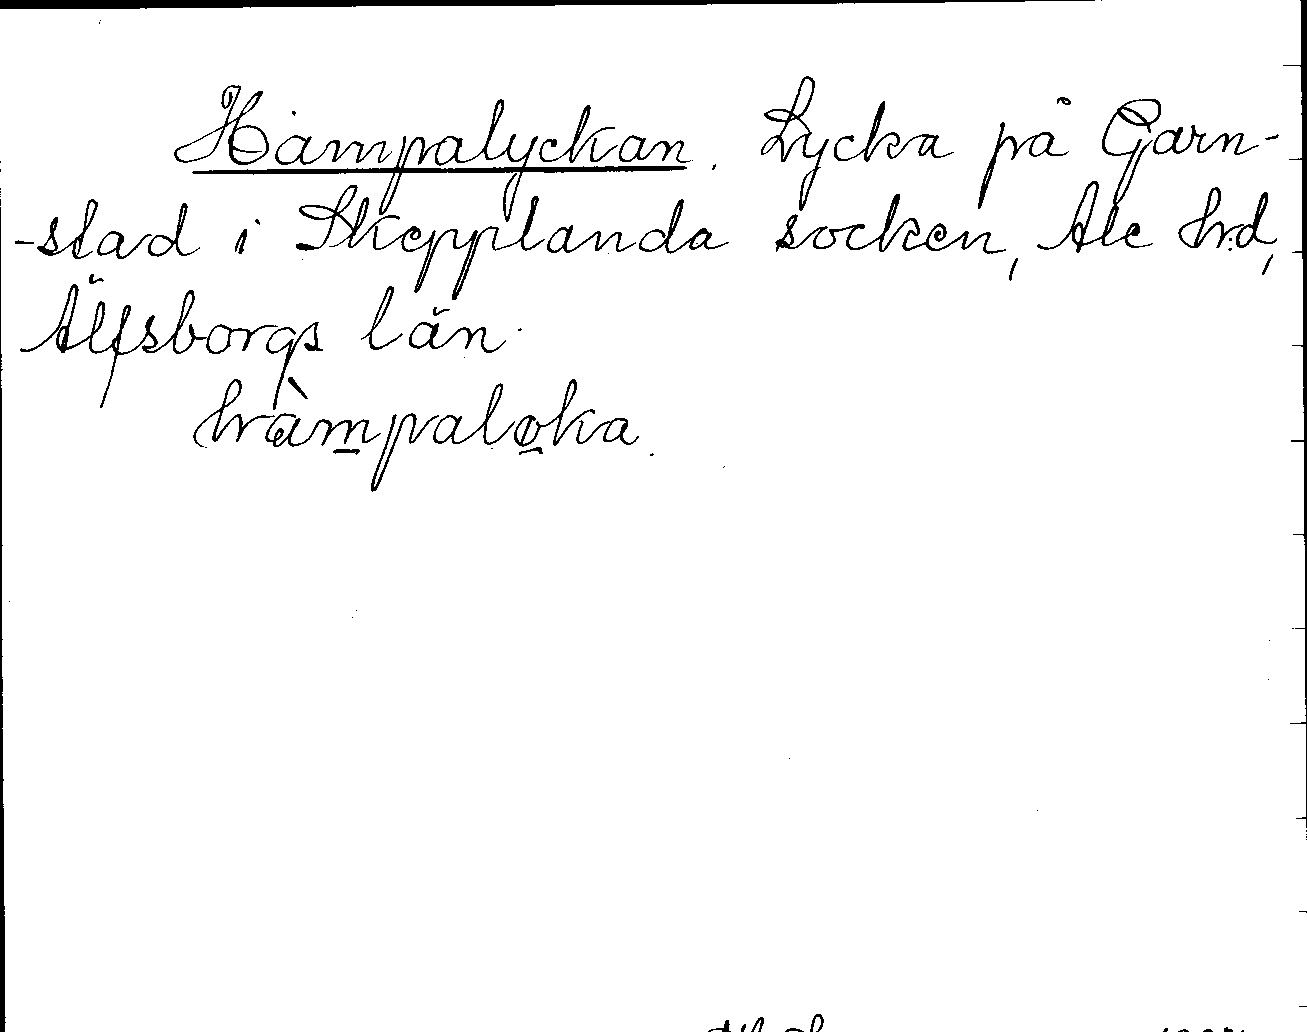 Hampalyckan. Lycka på Garn-
-stad i Skepplanda socken, Ale hrd,
Älfsborgs län.
hàm̲palo̲ka.